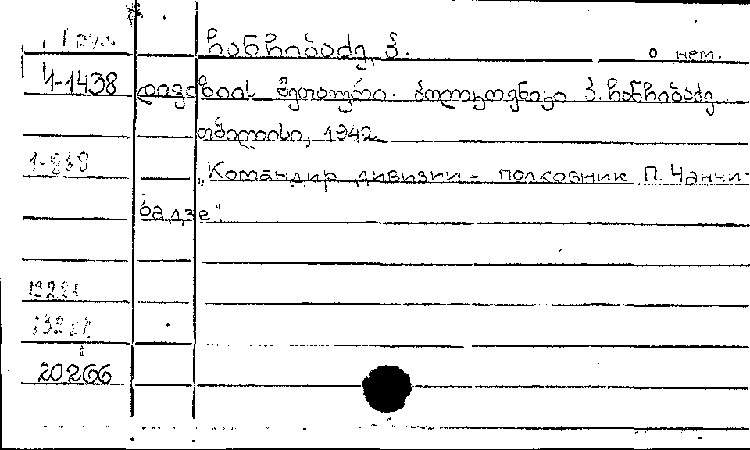 1 груз ჩანჩიბაძე, პ. о нем.
Ч-1438 დივიზიის მეთაური. პოლკოვნიკი პ. ჩანჩიბაძე
თბილისი, 1942
„Командир дивизии - полковник П. Чанчи-
бадзе"
20266